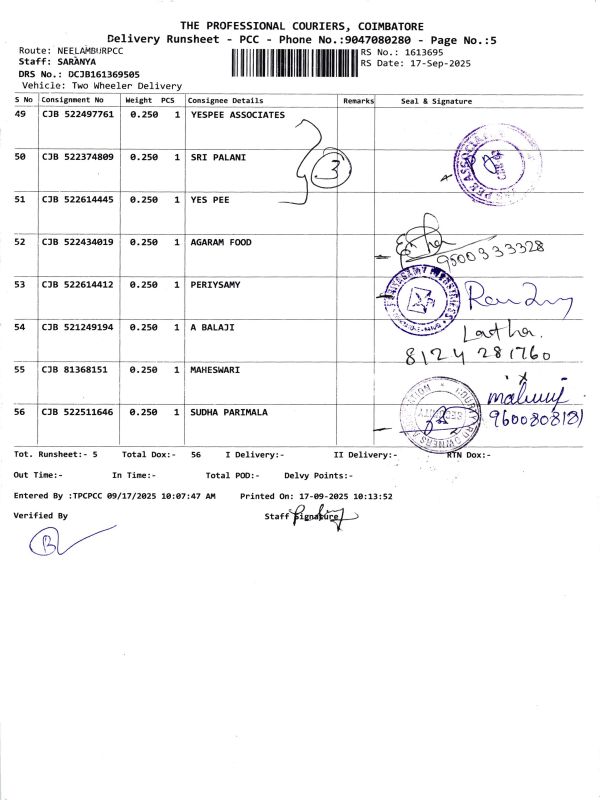 THE PROFESSIONAL COURIERS, COIMBATORE
Delivery Runsheet - PCC - Phone No.:9047080280 - Page No.:5
Route: NEELAMBURPCC
RS No.: 1613695
Staff: SARANYA
RS Date: 17-Sep-2025
DRS No.: DCJB161369505
Vehicle: Two Wheeler Delivery
S No Consignment No Weight PCS Consignee Details Remarks Seal & Signature
49 CJB 522497761 0.250 1 YESPEE ASSOCIATES
3
50 CJB 522374809 0.250 1 SRI PALANI
51 CJB 522614445 0.250 1 YES PEE
52 CJB 522434019 0.250 1 AGARAM FOOD
9500333328
53 CJB 522614412 0.250 1 PERIYSAMY
54 CJB 521249194 0.250 1 A BALAJI
Latha.
8124 281760
55 CJB 81368151 0.250 1 MAHESWARI
56 CJB 522511646 0.250 1 SUDHA PARIMALA
SECURITY
9600808181
Tot. Runsheet:- 5 Total Dox:- 56 I Delivery:- II Delivery:- RTN Dox:-
Out Time:- In Time:- Total POD:- Delvy Points:-
Entered By :TPCPCC 09/17/2025 10:07:47 AM Printed On: 17-09-2025 10:13:52
Verified By Staff Signature
B